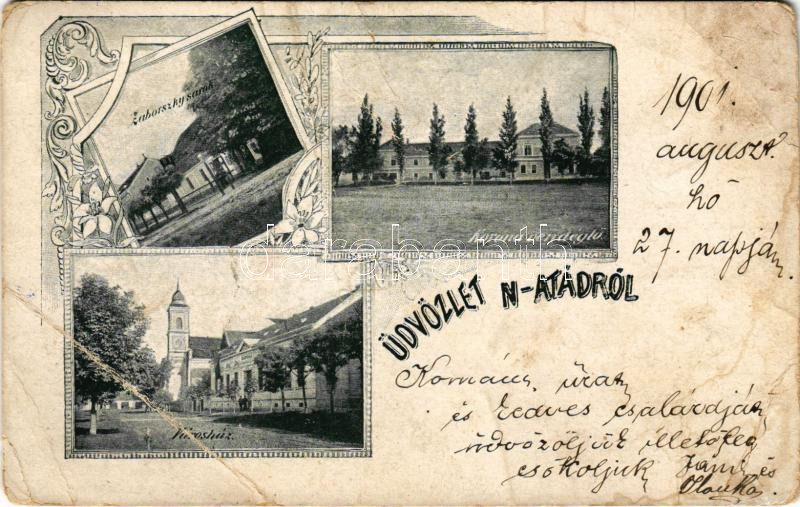 Zaborszky sarok
Korona vendéglő
Városház.
ÜDVÖZLET N-ATÁDRÓL
1901.
auguszt.
hó
27. napján.
úrat
és kedves családját
üdvözöljük illetőleg
csókoljuk Jani és